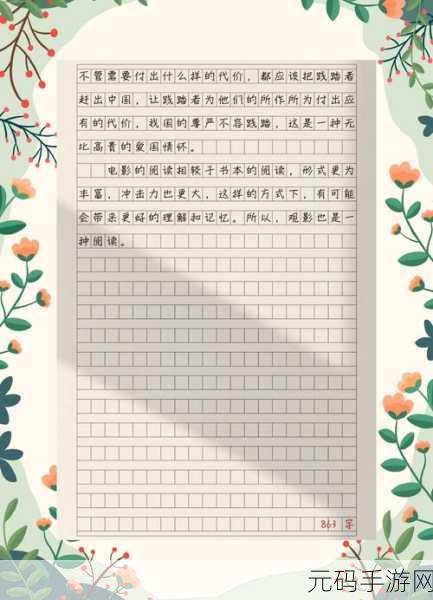 不管需要付出什么样的代价，都应该把践踏者
赶出中国，让践踏者为他们的所作所为付出应
有的代价，我国的尊严不容践踏，这是一种无
比高贵的爱国情怀。
电影的阅读相较于书本的阅读，形式更为
丰富，冲击力也更大，这样的方式下，有可能
会带来更好的理解和记忆。所以，观影也是一
种阅读。
863 字
元码手游网